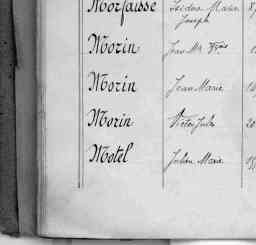 Morfaisse Isidore Marie
Joseph
Morin Jean Me Frois
Morin Jean Marie
Morin Victor Jules 20
Motel Julien Marie